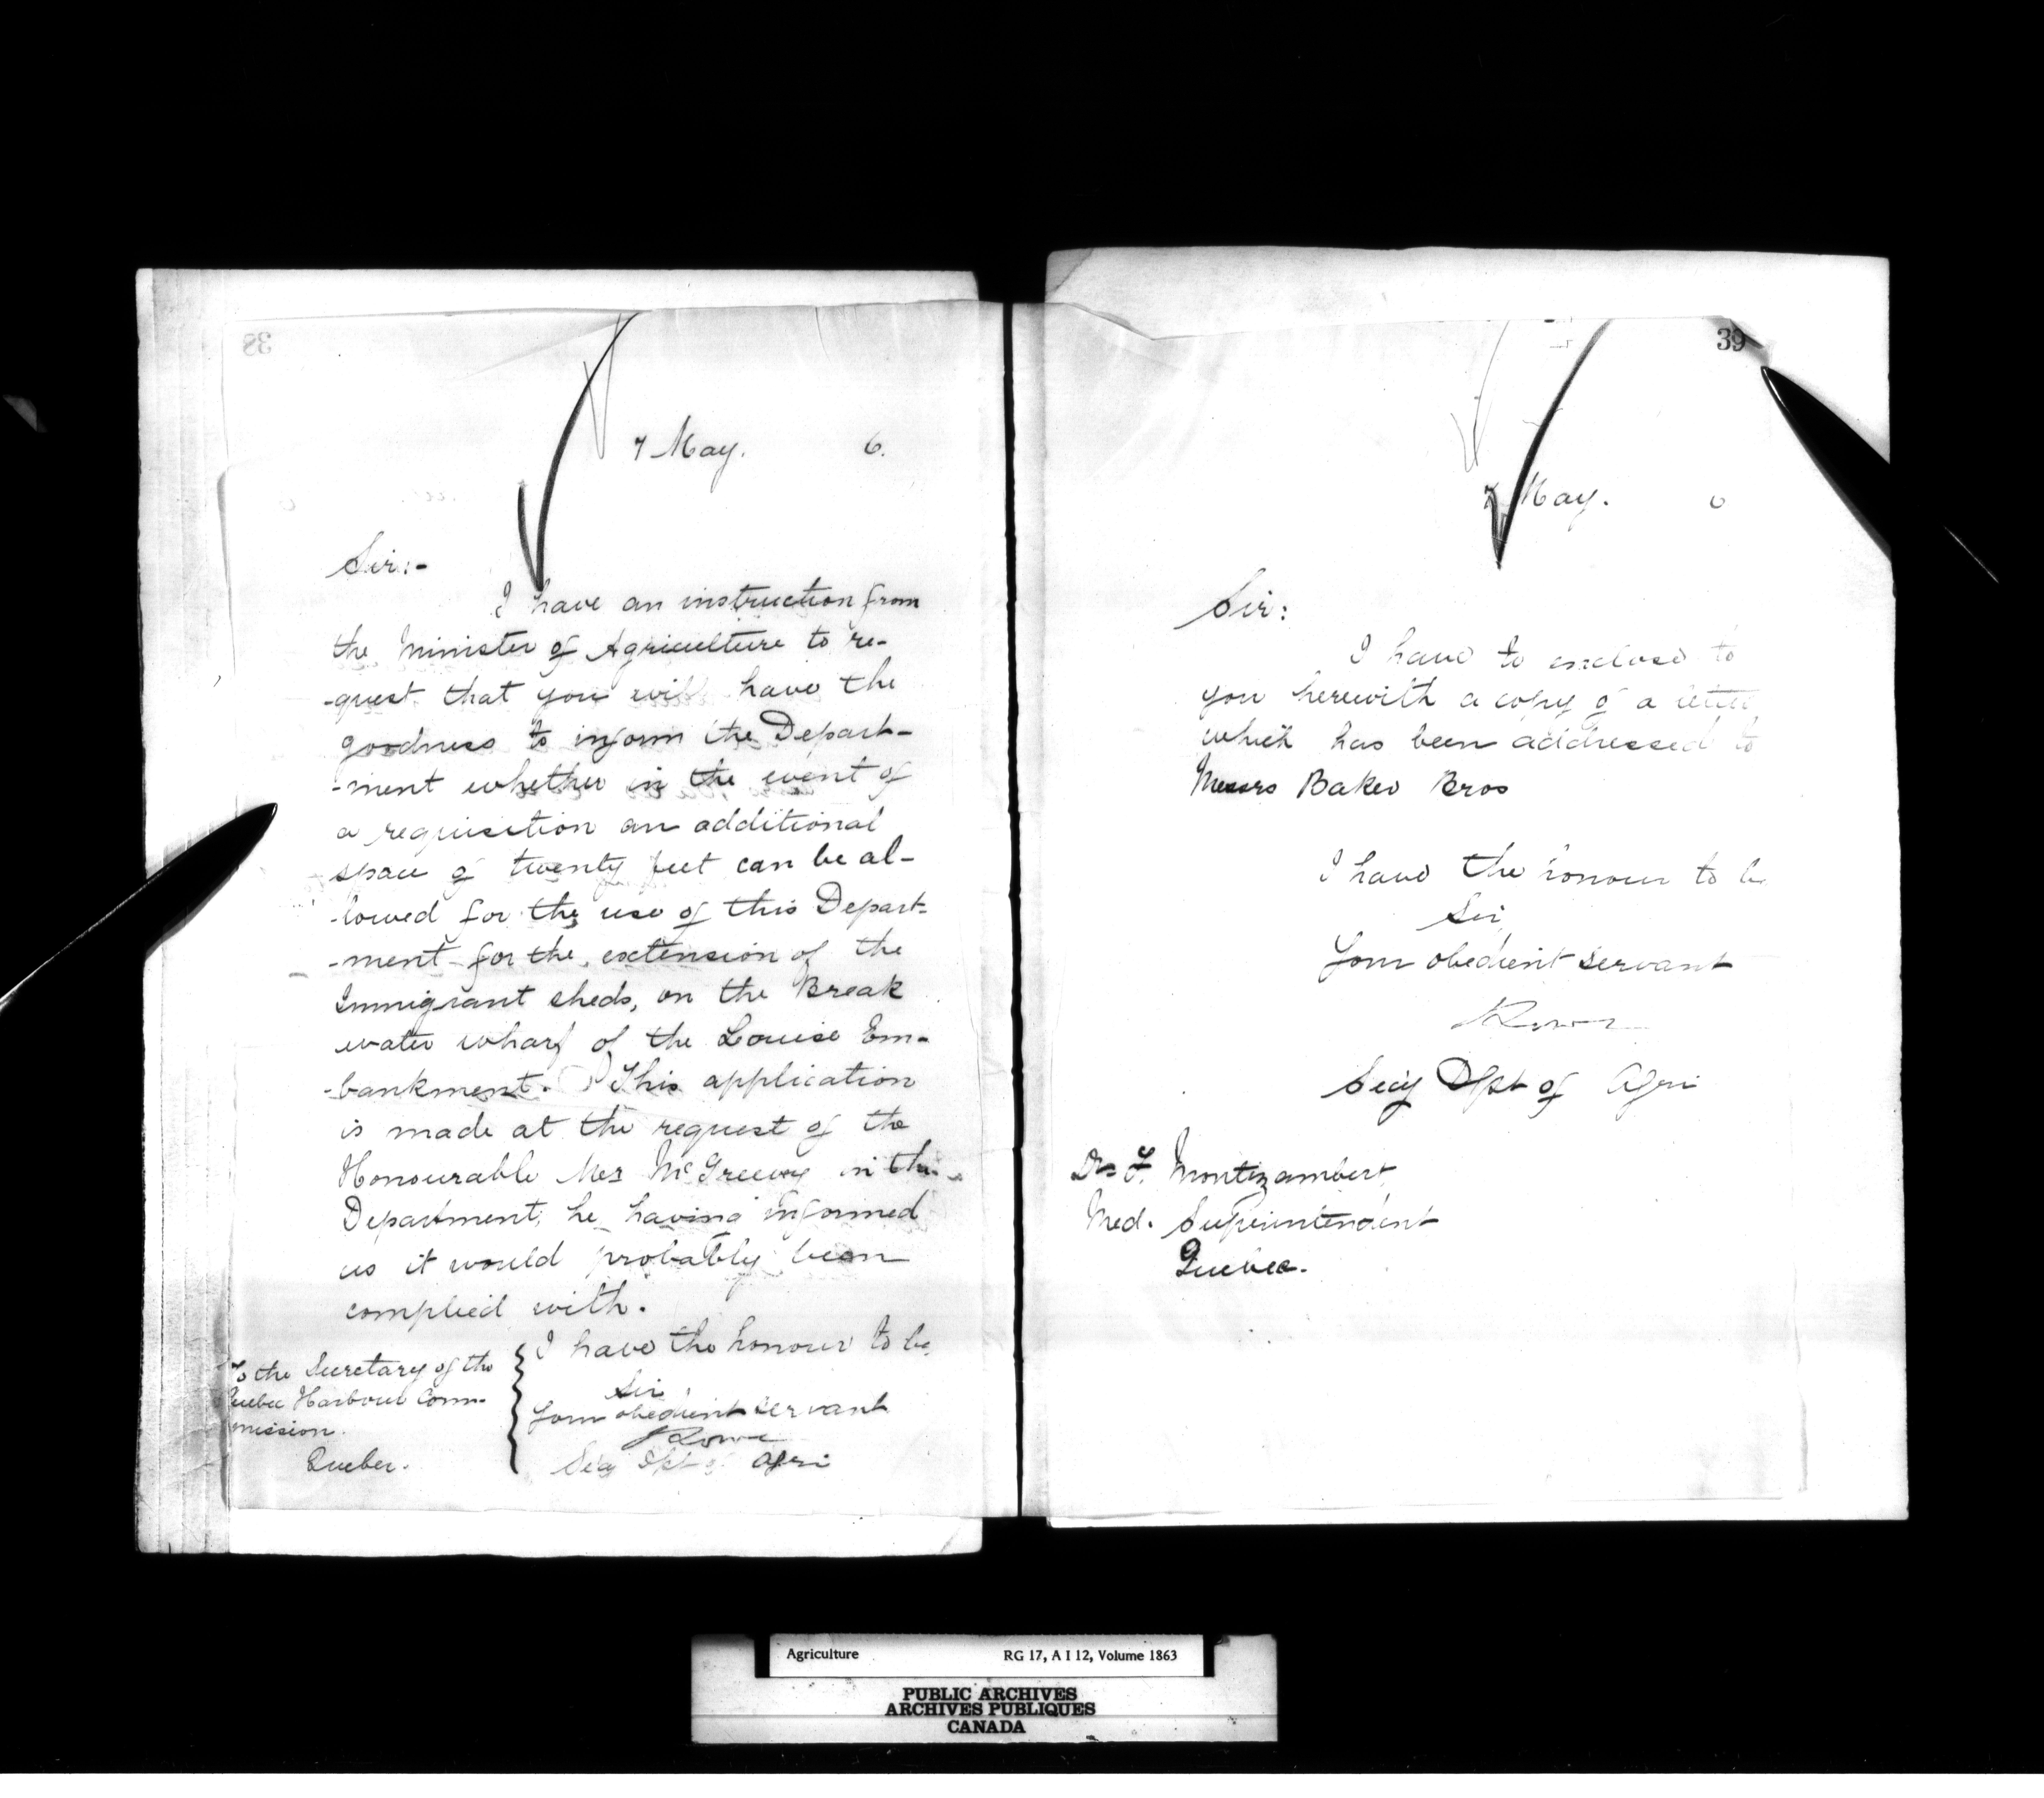 38
7 May. 6.
Sir:-
I have an instruction from
the Minister of Agriculture to re-
-quest that you will have the
goodness to inform the Depart-
-ment whether in the event of
a requisition an additional
space of twenty feet can be al-
-lowed for the use of this Depart-
-ment for the extension of the
Immigrant sheds, on the Break
water wharf of the Louise Em-
-bankment. This application
is made at the request of the
Honourable Mr McGreevy in the
Department, he having informed
us it would probably been
complied with.
I have the honour to be
Sir
Your obedient servant
Secy Dpt of Agri
To the Secretary of the
Quebec Harbour Com-
mission.
Quebec.
39
7 May.
Sir:
I have to enclose to
you herewith a copy of a letter
which has been addressed to
Messrs Baker Bros
I have the honour to be
Sir,
Your obedient servant
Secy Dpt of Agri
Dr F. Montizambert
Med. Superintendent
Quebec.
Agriculture RG 17, A I 12, Volume 1863
PUBLIC ARCHIVES
ARCHIVES PUBLIQUES
CANADA